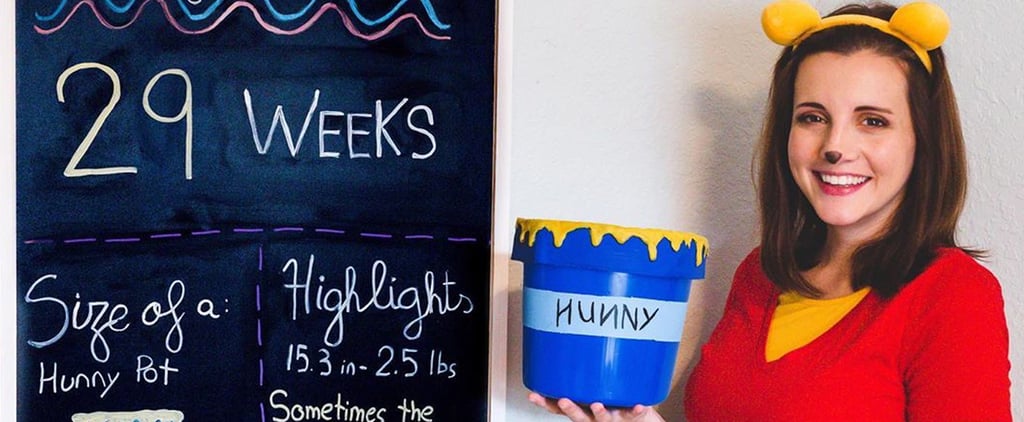 29 WEEKS
Size of a:
Hunny Pot
Highlights
15.3 in - 2.5 lbs
Sometimes the
HUNNY